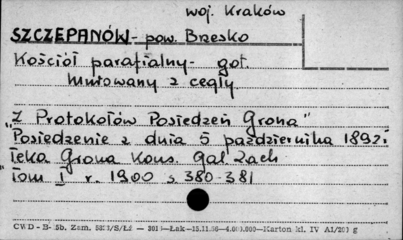 woj. Kraków
SZCZEPANÓW - pow. Brzesko
Kościół parafialny - got.
murowany z cegły.
"Z Protokołów Posiedzeń Grona"
Posiedzenie z dnia 5 października 1892 r
Teka Grona Kons. Gal. Zach
"Tom I r. 1900 s. 380-381
CWD - B- 5b. Zam. /S/Łż — Łak — 15.11. — 4.000.000 — Karton kl. IV A1/ g